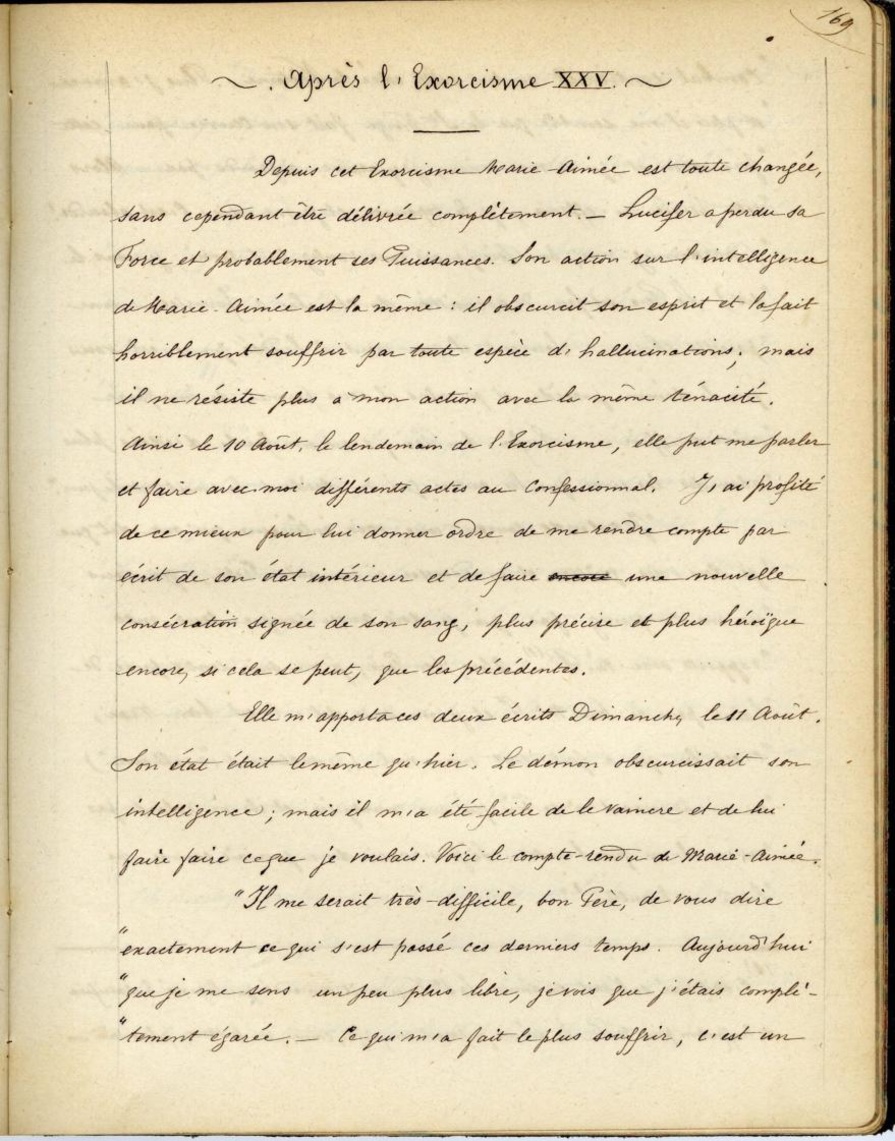 169
~ . Après l'Exorcisme XXV. ~
Depuis cet Exorcisme Marie-Aimée est toute changée,
sans cependant être délivrée complètement. — Lucifer a perdu sa
Force et probablement ses Puissances. Son action sur l'intelligence
de Marie-Aimée est la même : il obscurcit son esprit et la fait
horriblement souffrir par toute espèce d'hallucinations ; mais
il ne résiste plus à mon action avec la même ténacité.
Ainsi le 10 Août, le lendemain de l'Exorcisme, elle put me parler
et faire avec moi différents actes au Confessionnal. J'ai profité
de ce mieux pour lui donner ordre de me rendre compte par
écrit de son état intérieur et de faire encore une nouvelle
consécration signée de son sang, plus précise et plus héroïque
encore, si cela se peut, que les précédentes.
Elle m'apporta ces deux écrits Dimanche, le 11 Août.
Son état était le même qu'hier. Le démon obscurcissait son
intelligence ; mais il m'a été facile de le vaincre et de lui
faire faire ce que je voulais. Voici le compte-rendu de Marie-Aimée.
"Il me serait très-difficile, bon Père, de vous dire
"exactement ce qui s'est passé ces derniers temps. Aujourd'hui
"que je me sens un peu plus libre, je vois que j'étais complè-
"tement égarée. — Ce qui m'a fait le plus souffrir, c'est un